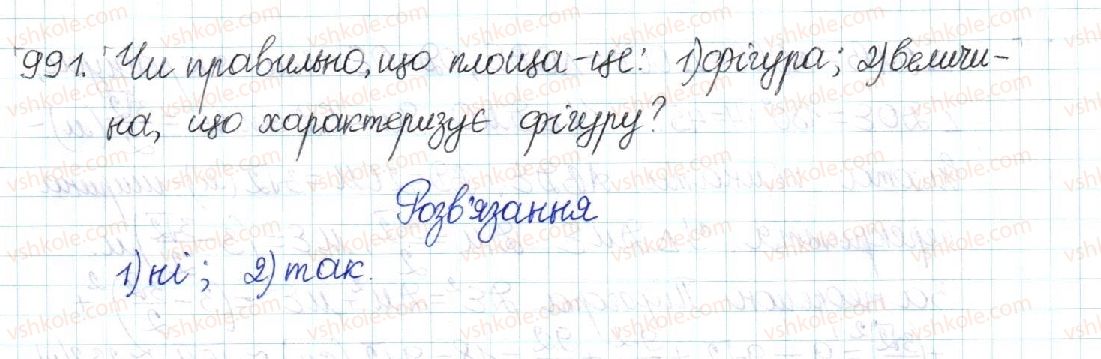 991. Чи правильно, що площа - це: 1) фігура; 2) величи-
на, що характеризує фігуру?
Розв'язання
1) ні; 2) так.